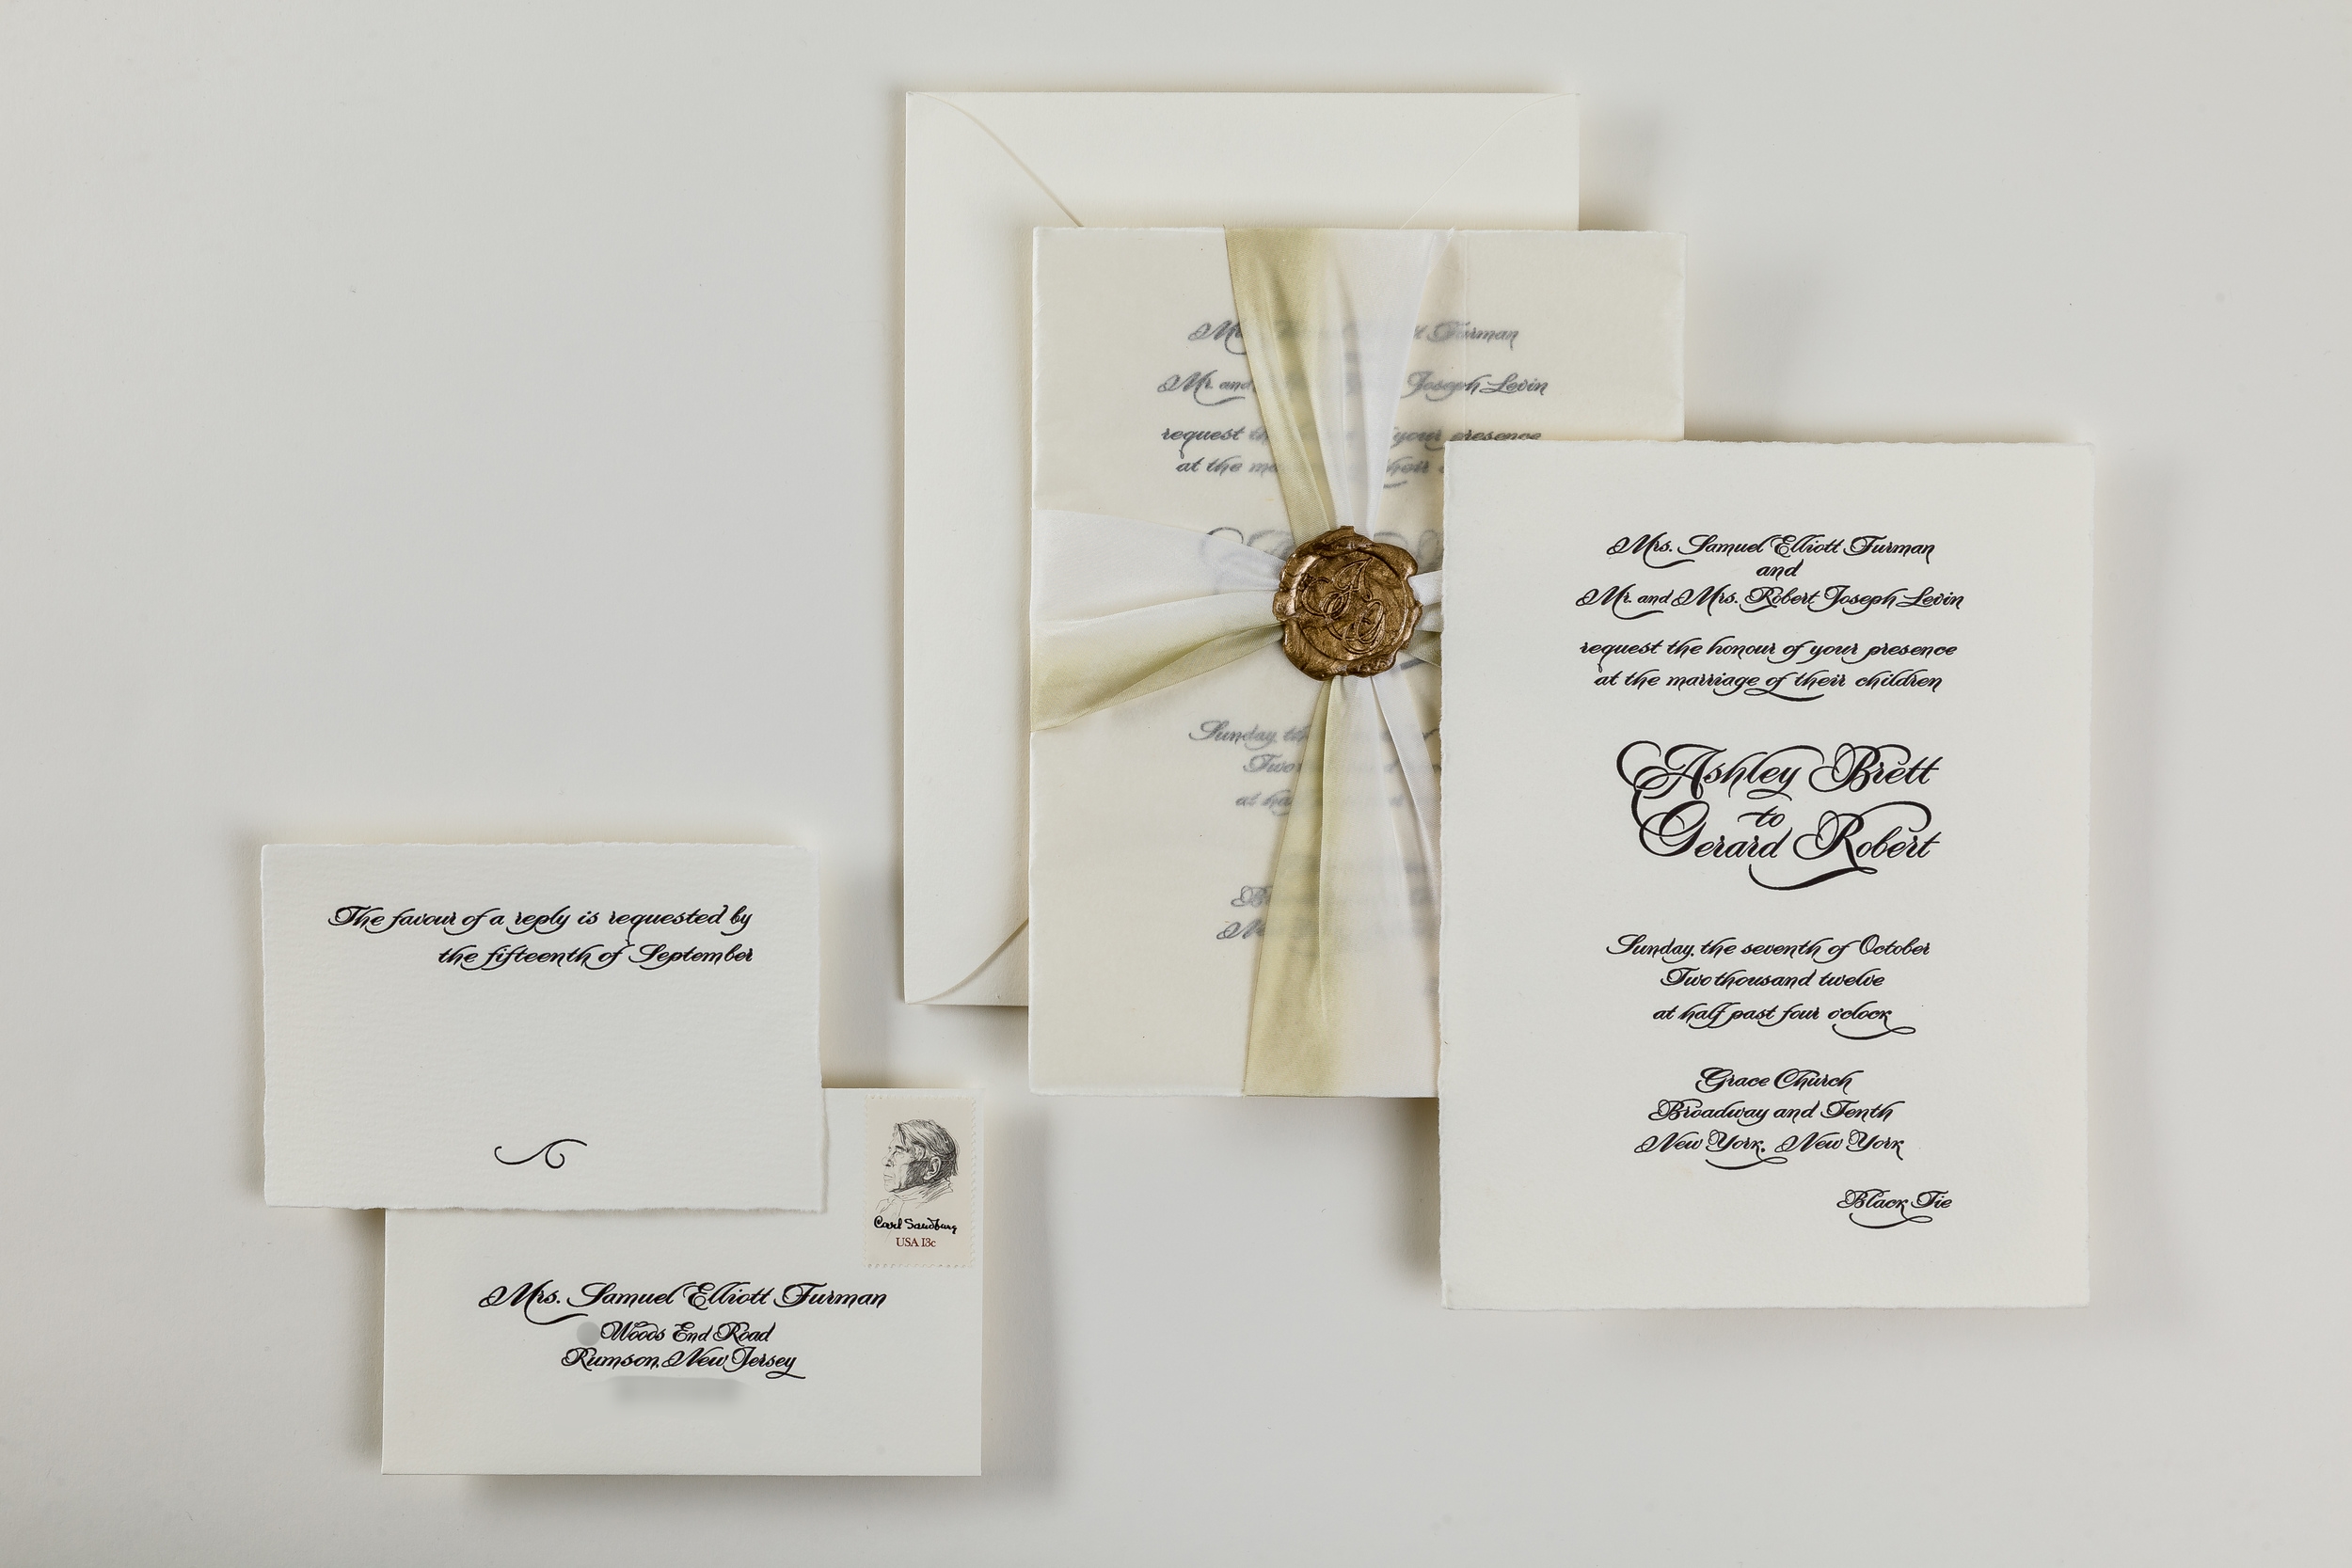 Mrs. Samuel Elliott Furman
and
Mr. and Mrs. Robert Joseph Levin
request the honour of your presence
at the marriage of their children
Ashley Brett
to
Gerard Robert
Sunday, the seventh of October
Two thousand twelve
at half past four o'clock
Grace Church
Broadway and Tenth
New York, New York
Black Tie
Furman
Mr. and Joseph Levin
request your presence
at the
Sunday
The favour of a reply is requested by
the fifteenth of September
Carl Sandburg
USA 13c
Mrs. Samuel Elliott Furman
Woods End Road
Rumson, New Jersey